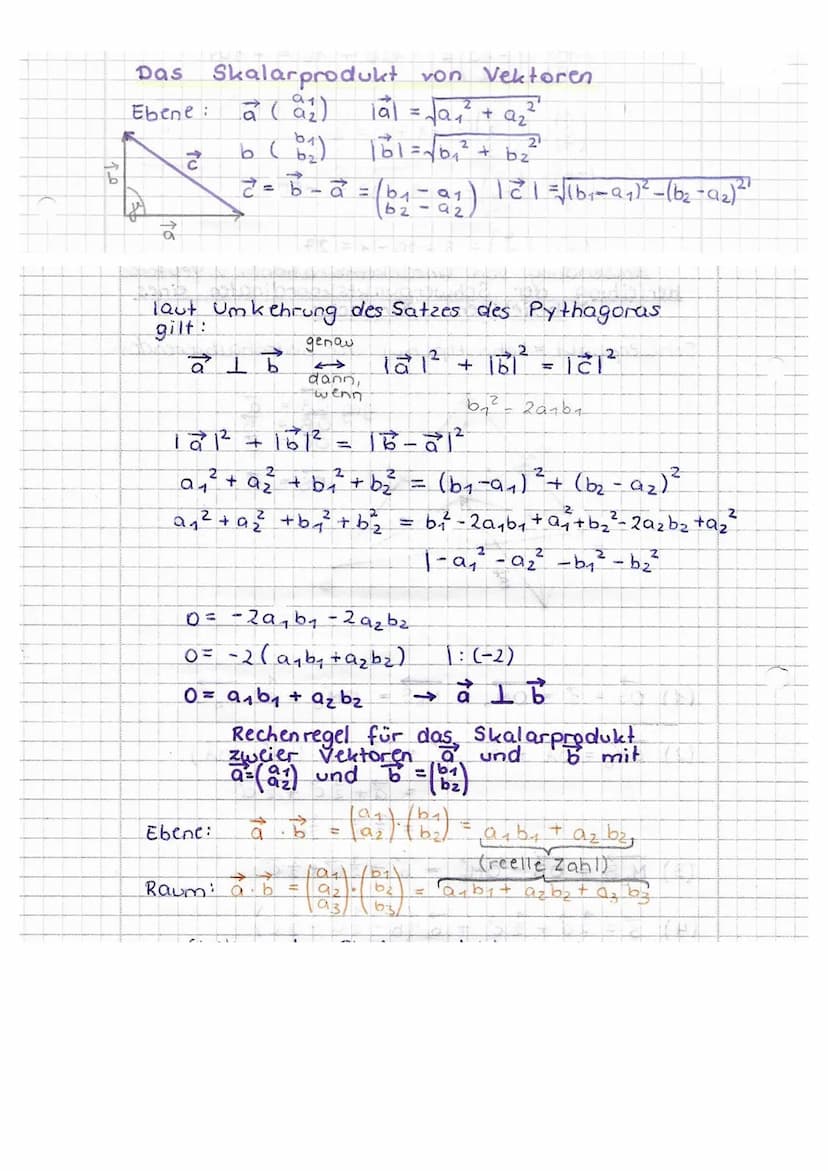 Das Skalarprodukt von Vektoren
Ebene: a⃗ (a₁ a₂) |a⃗| = √(a₁² + a₂²)
b (b₁ b₂) |b⃗| = √(b₁² + b₂²)
c⃗ = b⃗ - a⃗ = (b₁ - a₁ b₂ - a₂) |c⃗| = √((b₁-a₁)² - (b₂-a₂)²)
b⃗ c⃗
γ
a⃗
laut Umkehrung des Satzes des Pythagoras
gilt:
genau
a⃗ ⊥ b⃗ ↔ |a⃗|² + |b⃗|² = |c⃗|²
dann,
wenn
b₁² - 2a₁b₁
|a⃗|² + |b⃗|² = |b⃗ - a⃗|²
a₁² + a₂² + b₁² + b₂² = (b₁-a₁)² + (b₂-a₂)²
a₁² + a₂² + b₁² + b₂² = b₁² - 2a₁b₁ + a₁² + b₂² - 2a₂b₂ + a₂²
|-a₁² - a₂² - b₁² - b₂²
0 = -2a₁b₁ - 2a₂b₂
0 = -2(a₁b₁ + a₂b₂) |:(-2)
0 = a₁b₁ + a₂b₂ → a⃗ ⊥ b⃗
Rechenregel für das Skalarprodukt
zweier Vektoren a⃗ und b⃗ mit
a⃗ = (a₁ a₂) und b⃗ = (b₁ b₂)
Ebene: a⃗ · b⃗ = (a₁ a₂) · (b₁ b₂) = a₁b₁ + a₂b₂
(reelle Zahl)
Raum: a⃗ · b⃗ = (a₁ a₂ a₃) · (b₁ b₂ b₃) = a₁b₁ + a₂b₂ + a₃b₃